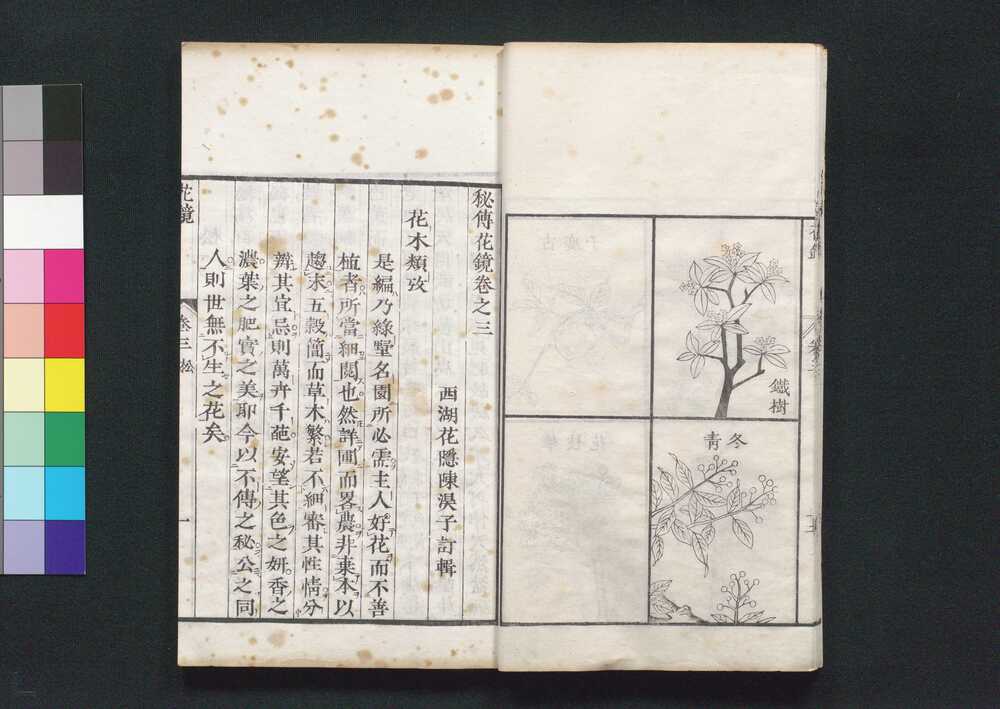 鐵樹
冬青
秘傳花鏡卷之三
西湖花隱陳淏子訂輯
花木類攷
是編乃綠墅名園所必需主人好花而不善
植者所當細閱也然詳圃而畧農非棄本以
趨末五穀簡而草木繁若不細審其性情分
辨其宜忌則萬卉千葩安望其色之妍香之
濃葉之肥實之美耶今以不傳之秘公之同
人則世無不生之花矣
花鏡
卷三
松
一